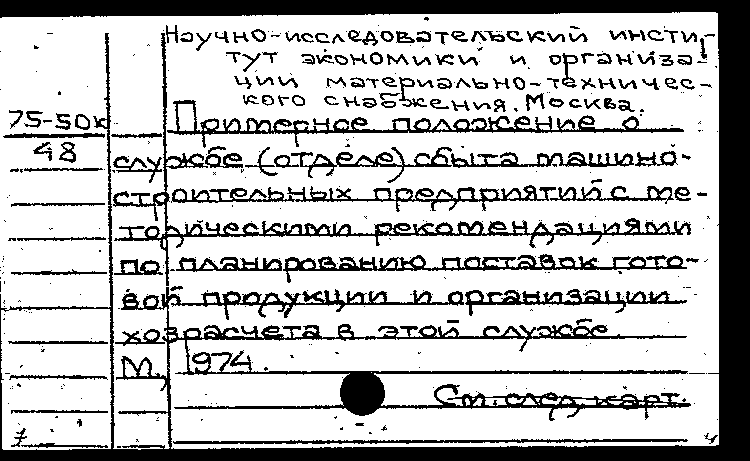 Научно-исследовательский инсти-
тут экономики и организа-
ции материально-техничес-
кого снабжения. Москва.
75-50к Примерное положение о
48 службе (отделе) сбыта машино-
строительных предприятий с ме-
тодическими рекомендациями
по планированию поставок гото-
вой продукции и организации
хозрасчета в этой службе
М., 1974.
См. след. карт.